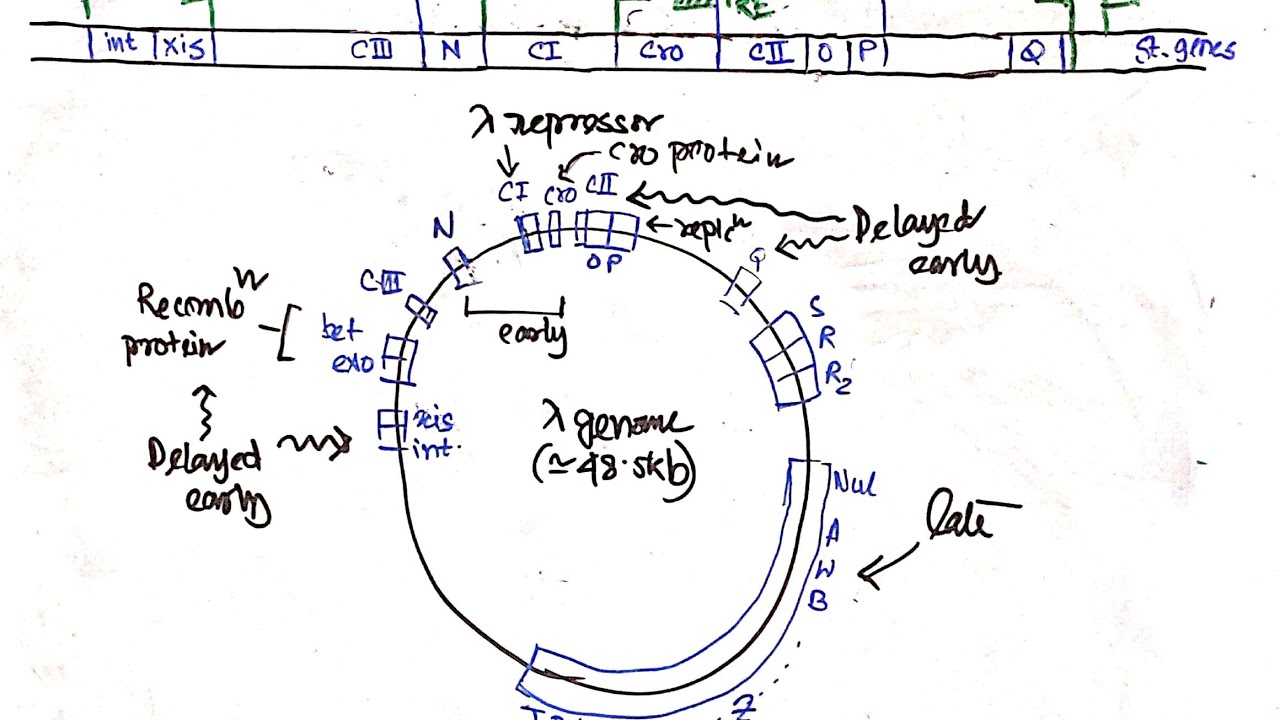 RE
int xis CIII N CI Cro CII O P Q St. genes
λ repressor
cro protein
CI Cro CII
Delayed
early
← replⁿ
N
O P
Q
CIII
early
Recombⁿ
protein
bet
exo
S
R
R2
xis
int.
Delayed
early
λ genome
(≃48.5kb)
Nul
A
W
B
Late
Z
J